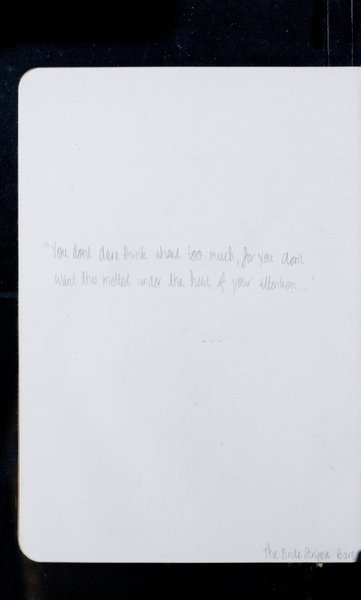 "You don't dare think ahead too much, for you don't
want this melted under the heat of your attention..."
The Bride Stripped Bare